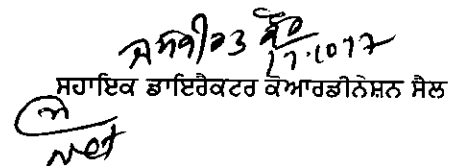 ਜਸਬੀਰ ਕੌਰ
17.10.17
ਸਹਾਇਕ ਡਾਇਰੈਕਟਰ ਕੋਆਰਡੀਨੇਸ਼ਨ ਸੈਲ
Net